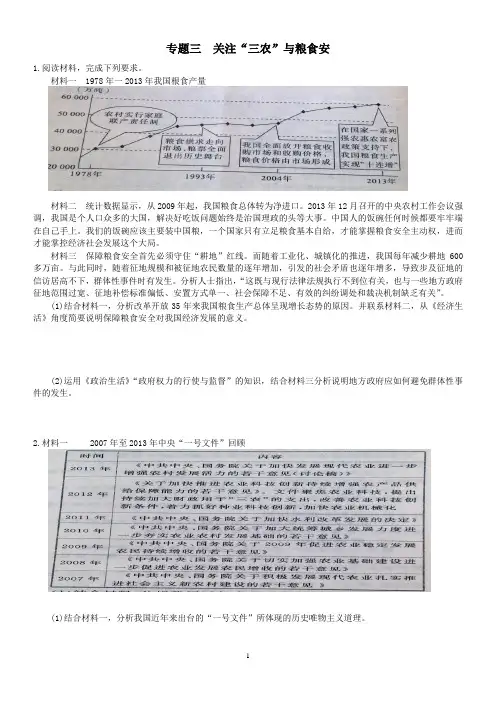 专题三 关注“三农”与粮食安
1.阅读材料，完成下列要求。
材料一 1978年一2013年我国根食产量
（万吨）
60 000
50 000
40 000
30 000
20 000
农村实行家庭
联产责任制
粮食供求走向
市场，粮票全面
退出历史舞台
我国全面放开粮食收
购市场和收购价格，
粮食价格由市场形成
在国家一系列
强农惠农富农
政策支持下，
我国粮食生产
实现“十连增”
1978年
1993年
2004年
2013年
材料二 统计数据显示，从2009年起，我国粮食总体转为净进口。2013年12月召开的中央农村工作会议强
调，我国是个人口众多的大国，解决好吃饭问题始终是治国理政的头等大事。中国人的饭碗任何时候都要牢牢端
在自己手上。我们的饭碗应该主要装中国粮，一个国家只有立足粮食基本自给，才能掌握粮食安全主动权，进而
才能掌控经济社会发展这个大局。
材料三 保障粮食安全首先必须守住“耕地”红线。而随着工业化，城镇化的推进，我国每年减少耕地600
多万亩。与此同时，随着征地规模和被征地农民数量的逐年增加，引发的社会矛盾也逐年增多，导致涉及征地的
信访居高不下，群体性事件时有发生。分析人士指出，“这既与现行法律法规执行不到位有关，也与一些地方政府
征地范围过宽、征地补偿标准偏低、安置方式单一、社会保障不足、有效的纠纷调处和裁决机制缺乏有关”。
(1)结合材料一，分析改革开放35年来我国粮食生产总体呈现增长态势的原因。并联系材料二，从《经济生
活》角度简要说明保障粮食安全对我国经济发展的意义。
(2)运用《政治生活》“政府权力的行使与监督”的知识，结合材料三分析说明地方政府应如何避免群体性事
件的发生。
2.材料一 2007年至2013年中央“一号文件”回顾
时间 内容
2013年 《中共中央、国务院关于加快发展现代农业进一步
增强农村发展活力的若干意见（讨论稿）》
2012年 《关于加快推进农业科技创新持续增强农产品供
给保障能力的若干意见》。文件聚焦农业科技，提出
持续加大财政用于“三农”的支出，改善农业科技创
新条件，着力抓好种业科技创新，加快农业机械化
2011年 《中共中央、国务院关于加快水利改革发展的决定》
2010年 《中共中央、国务院关于加大统筹城乡发展力度进
一步夯实农业农村发展基础的若干意见》
2009年 《中共中央、国务院关于2009年促进农业稳定发展
农民持续增收的若干意见》
2008年 《中共中央、国务院关于切实加强农业基础建设进
一步促进农业发展农民增收的若干意见》
2007年 《中共中央、国务院关于积极发展现代农业扎实推
进社会主义新农村建设的若干意见》
(1)结合材料一，分析我国近年来出台的“一号文件”所体现的历史唯物主义道理。
1